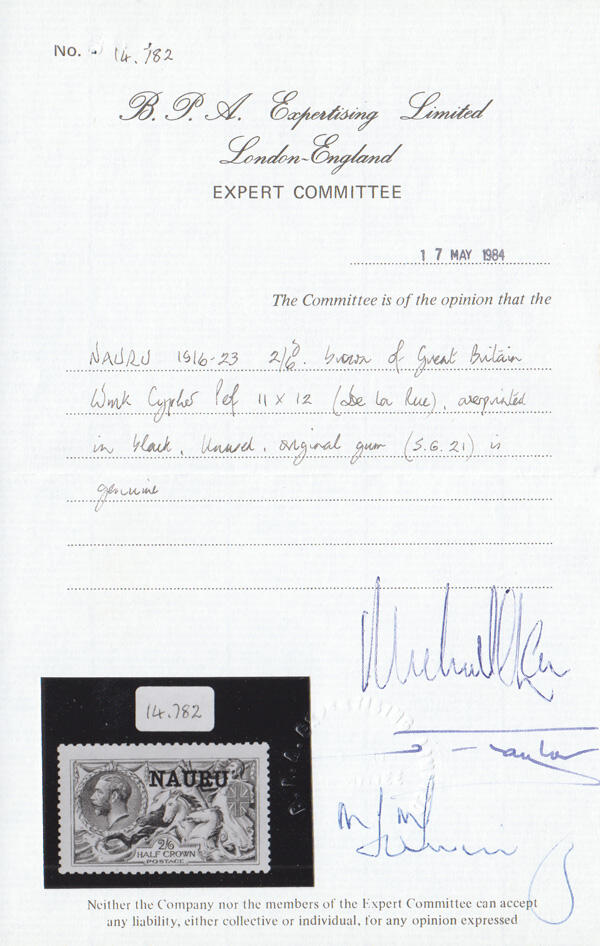 No. 14.782
B. P. A. Expertising Limited
London-England
EXPERT COMMITTEE
17 MAY 1984
The Committee is of the opinion that the
NAURU 1916-23 2/6d. brown of Great Britain
Wmk Cypher Perf 11 x 12 (De La Rue), overprinted
in black, Unused, original gum (S.G. 21) is
genuine
14.782
NAURU
2/6
HALF CROWN
POSTAGE
Neither the Company nor the members of the Expert Committee can accept
any liability, either collective or individual, for any opinion expressed